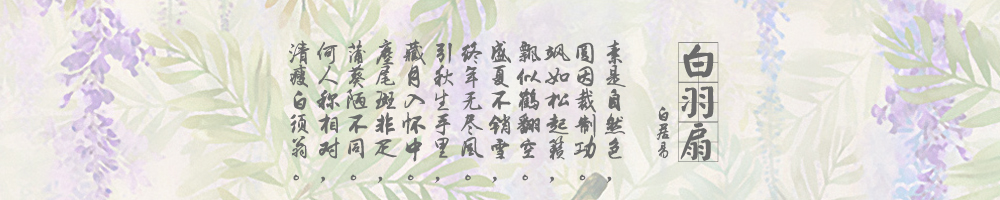 白羽扇
白居易
素是自然色，
圆因裁制功。
飒如松起籁，
飘似鹤翻空。
盛夏不销雪，
终年无尽风。
引秋生手里，
藏月入怀中。
麈尾斑非疋，
蒲葵陋不同。
何人称相对，
清瘦白须翁。